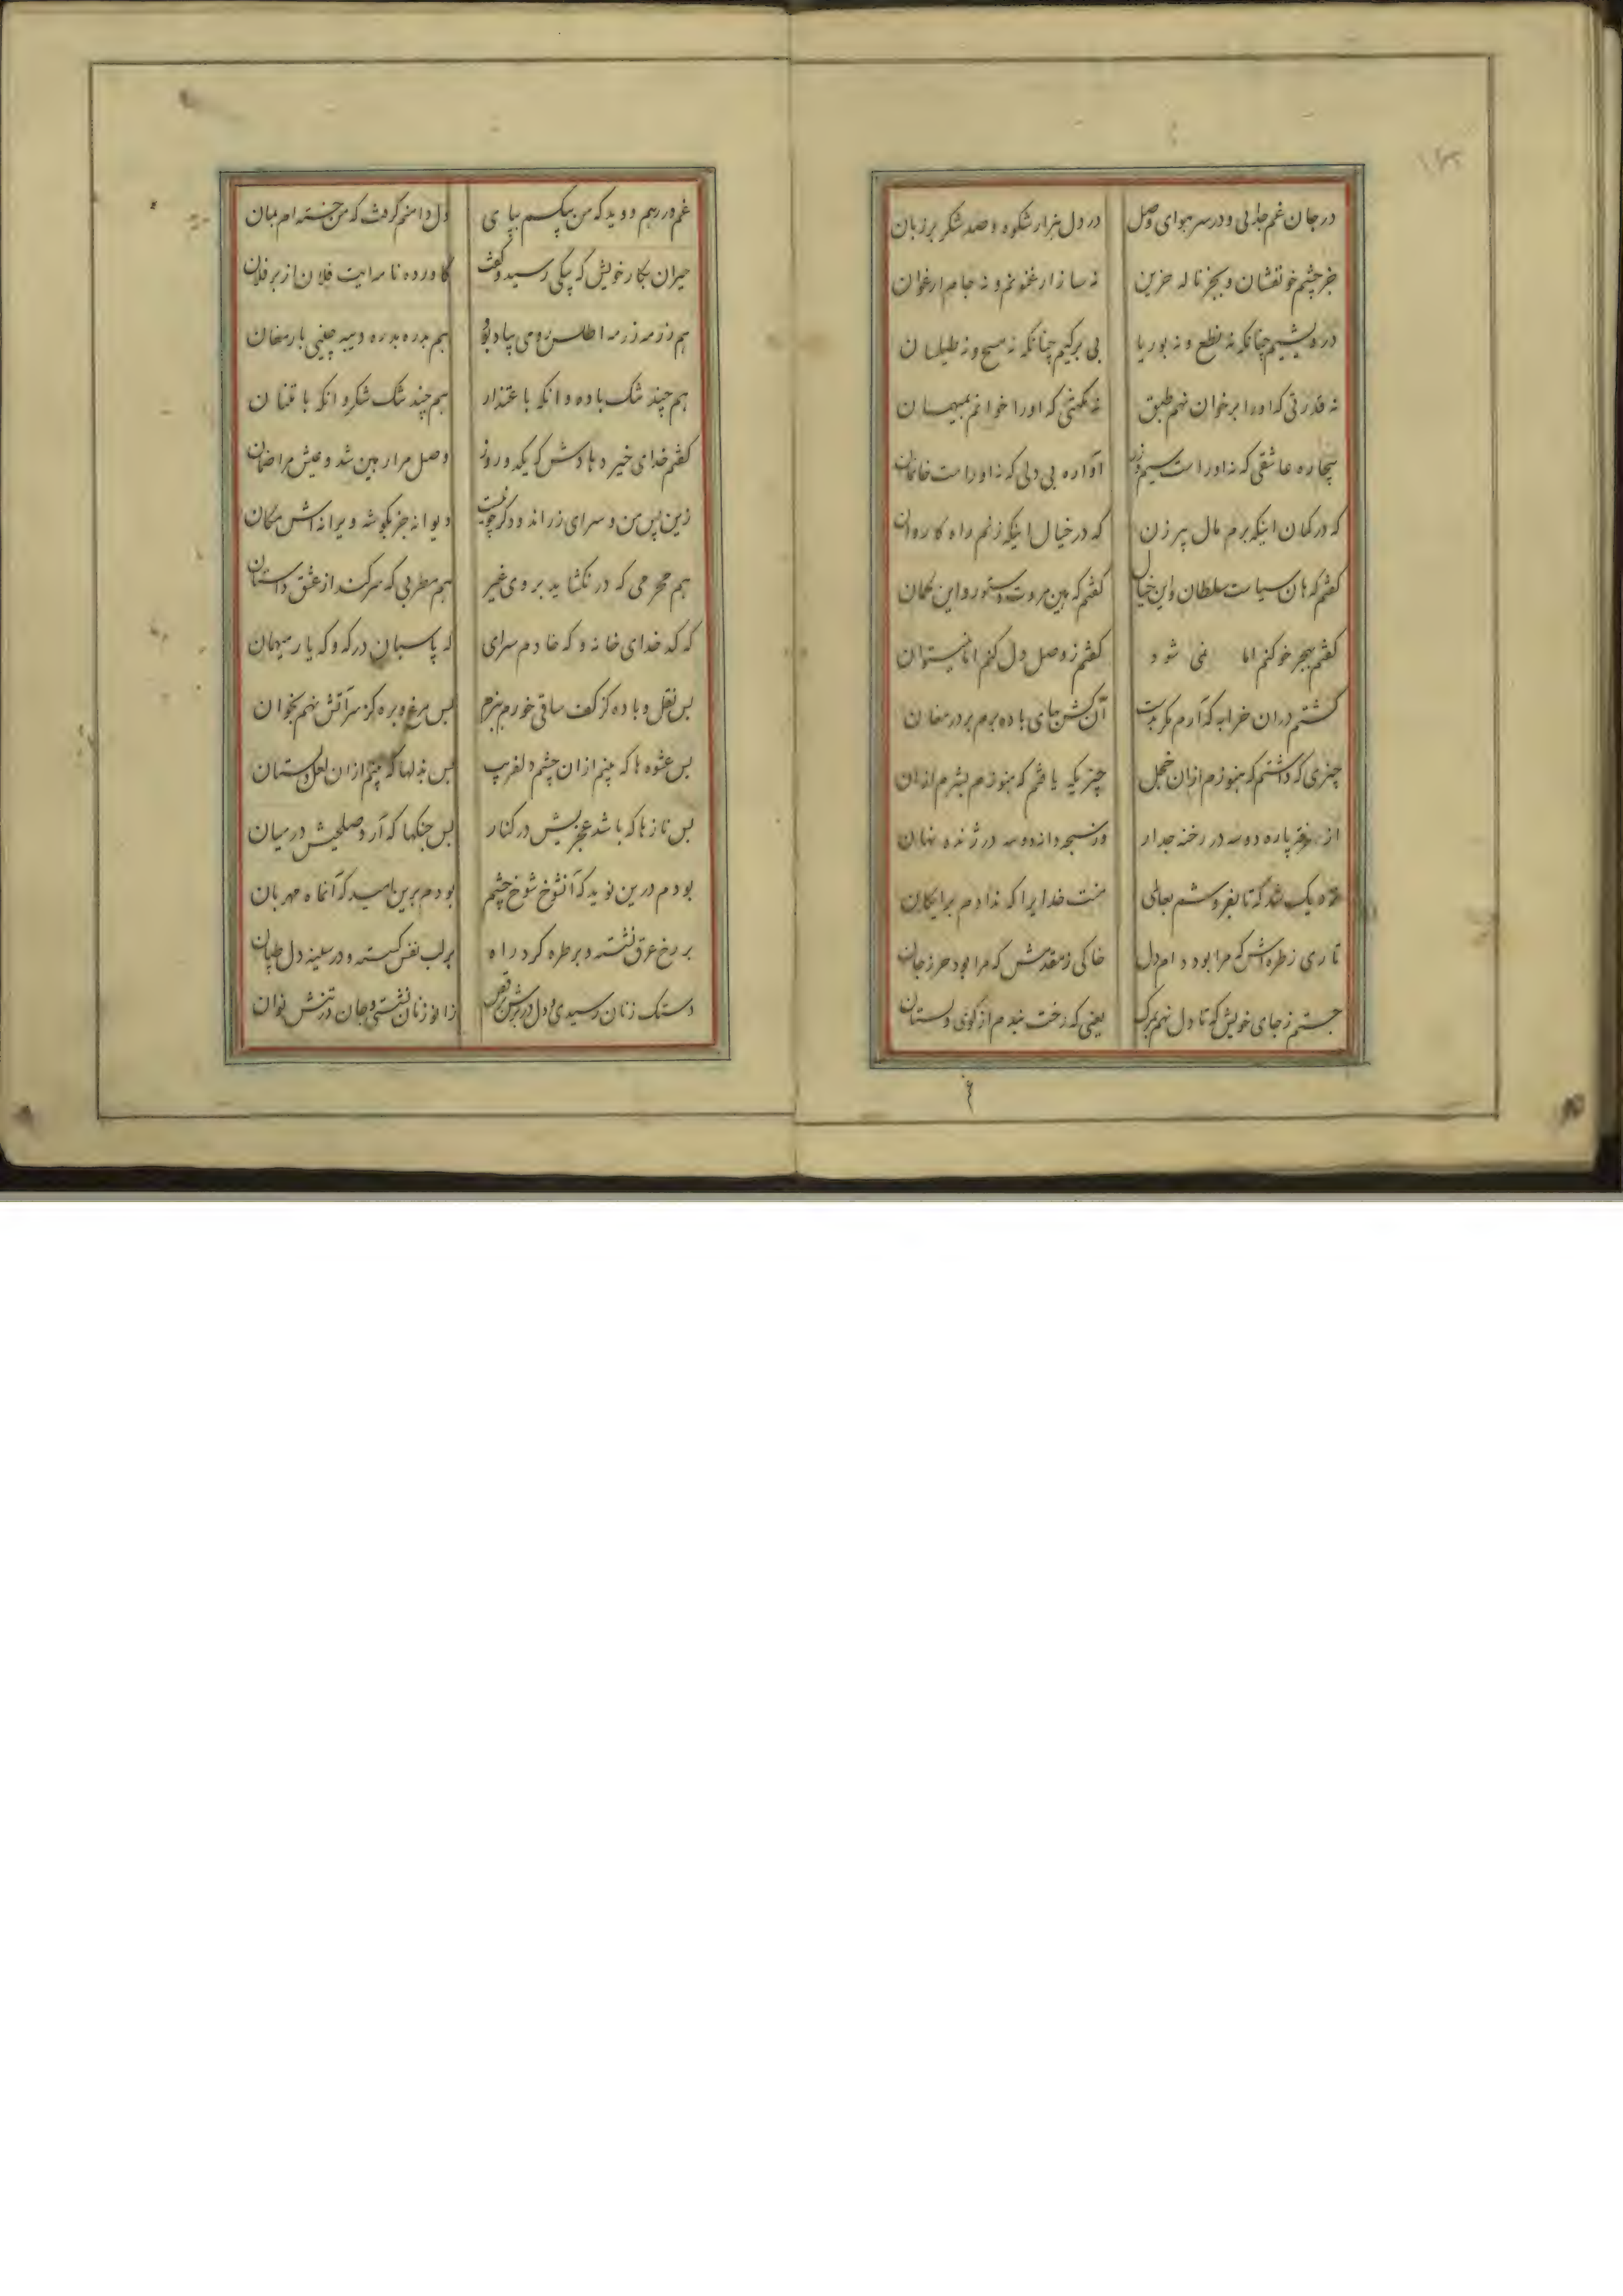 در جان غم جدائی و در سر هوای وصل در دل هزار شکوه و صد شکر بر زبان
جز چشم خونفشان و بجز ناله حزین نه ساز ارغنونم و نه جام ارغوان
درویشیم چنانکه نه نطع و نه بوریا بی برگیم چنانکه نه مسح و نه طیلسان
نه قدرتی که او را بر خوان نهم طبق نه مکنتی که او را خوانم بمیهمان
بیچاره عاشقی که نه او راست سیم و زر آواره بی دلی که نه او راست خانمان
که در کمان اینکه برم مال پیر زن که در خیال اینکه زنم راه کاروان
کفتم که هان سیاست سلطان و این خیال کفتم که هین مروت دستور و این کمان
کفتم بهجر خو کنم اما نمی شود کفتم ز وصل دل کنم اما نمیتوان
کشتم در ان خرابه که آرم مکر بدست آن کش بجای باده برم بر در مغان
چیزی که داشتم که هنوزم از ان خجل چیزیکه یافتم که هنوزم بشرم از ان
از پاره دو سه در رخنه جدار دو سه در ژنده نهان
شد که تا بفروشم بجای منت خدایرا که ندادم برایکان
تاری ز طره اش که مرا بود دام دل خاکی ز مقدمش که مرا بود حرز جان
جستم ز جای خویش که تا دل نهم بمرک یعنی که رخت بندم از کوی دلستان
غم در رهم دوید که من بیکسم بپای دل دامنم کرفت که من خسته ام بمان
حیران بکار خویش که پیکی رسید و کفت کاورده نامه ایت فلان از بر فلان
هم رزمه رزمه اطلس رومی بیادبود هم بدره بدره دیبه چینی بارمغان
هم چند مشک باده و انکه باعتذار هم چند تنک شکر و انکه بامتنان
کفتم خدای خیر دهادش که یکدو روز وصل مرا رهین شد و عیش مرا ضمان
زین پس من و سرای زر اندود کرچه نیست دیوانه جز بکوشه ویرانه اش مکان
هم محرمی که در نکشاید بروی غیر هم مطربی که سر کند از عشق داستان
که کدخدای خانه و که خادم سرای که پاسبان درکه و که یار میهمان
بس نقل و باده کز کف ساقی خورم ببزم بس مرغ و بره کز سر آتش نهم بخوان
بس عشوه ها که بینم از ان چشم دلفریب بس بذلها که بینم از ان لعل دلستان
بس نازها که باشد عجزیش در کنار بس جنکها که آرد صلحیش در میان
بودم درین نوید که آنشوخ شوخ چشم بودم برین امید که آنماه مهربان
بر رخ عرق نشسته و بر طره کرد راه بر لب نفس کسسته و در سینه دل طپان
دستک زنان رسیدی و دل در برش برقص زانو زنان نشستی و جان در تنش نوان